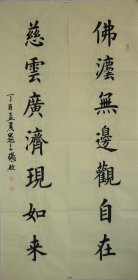 佛灋無邊觀自在
慈雲廣濟現如来
丁酉孟夏